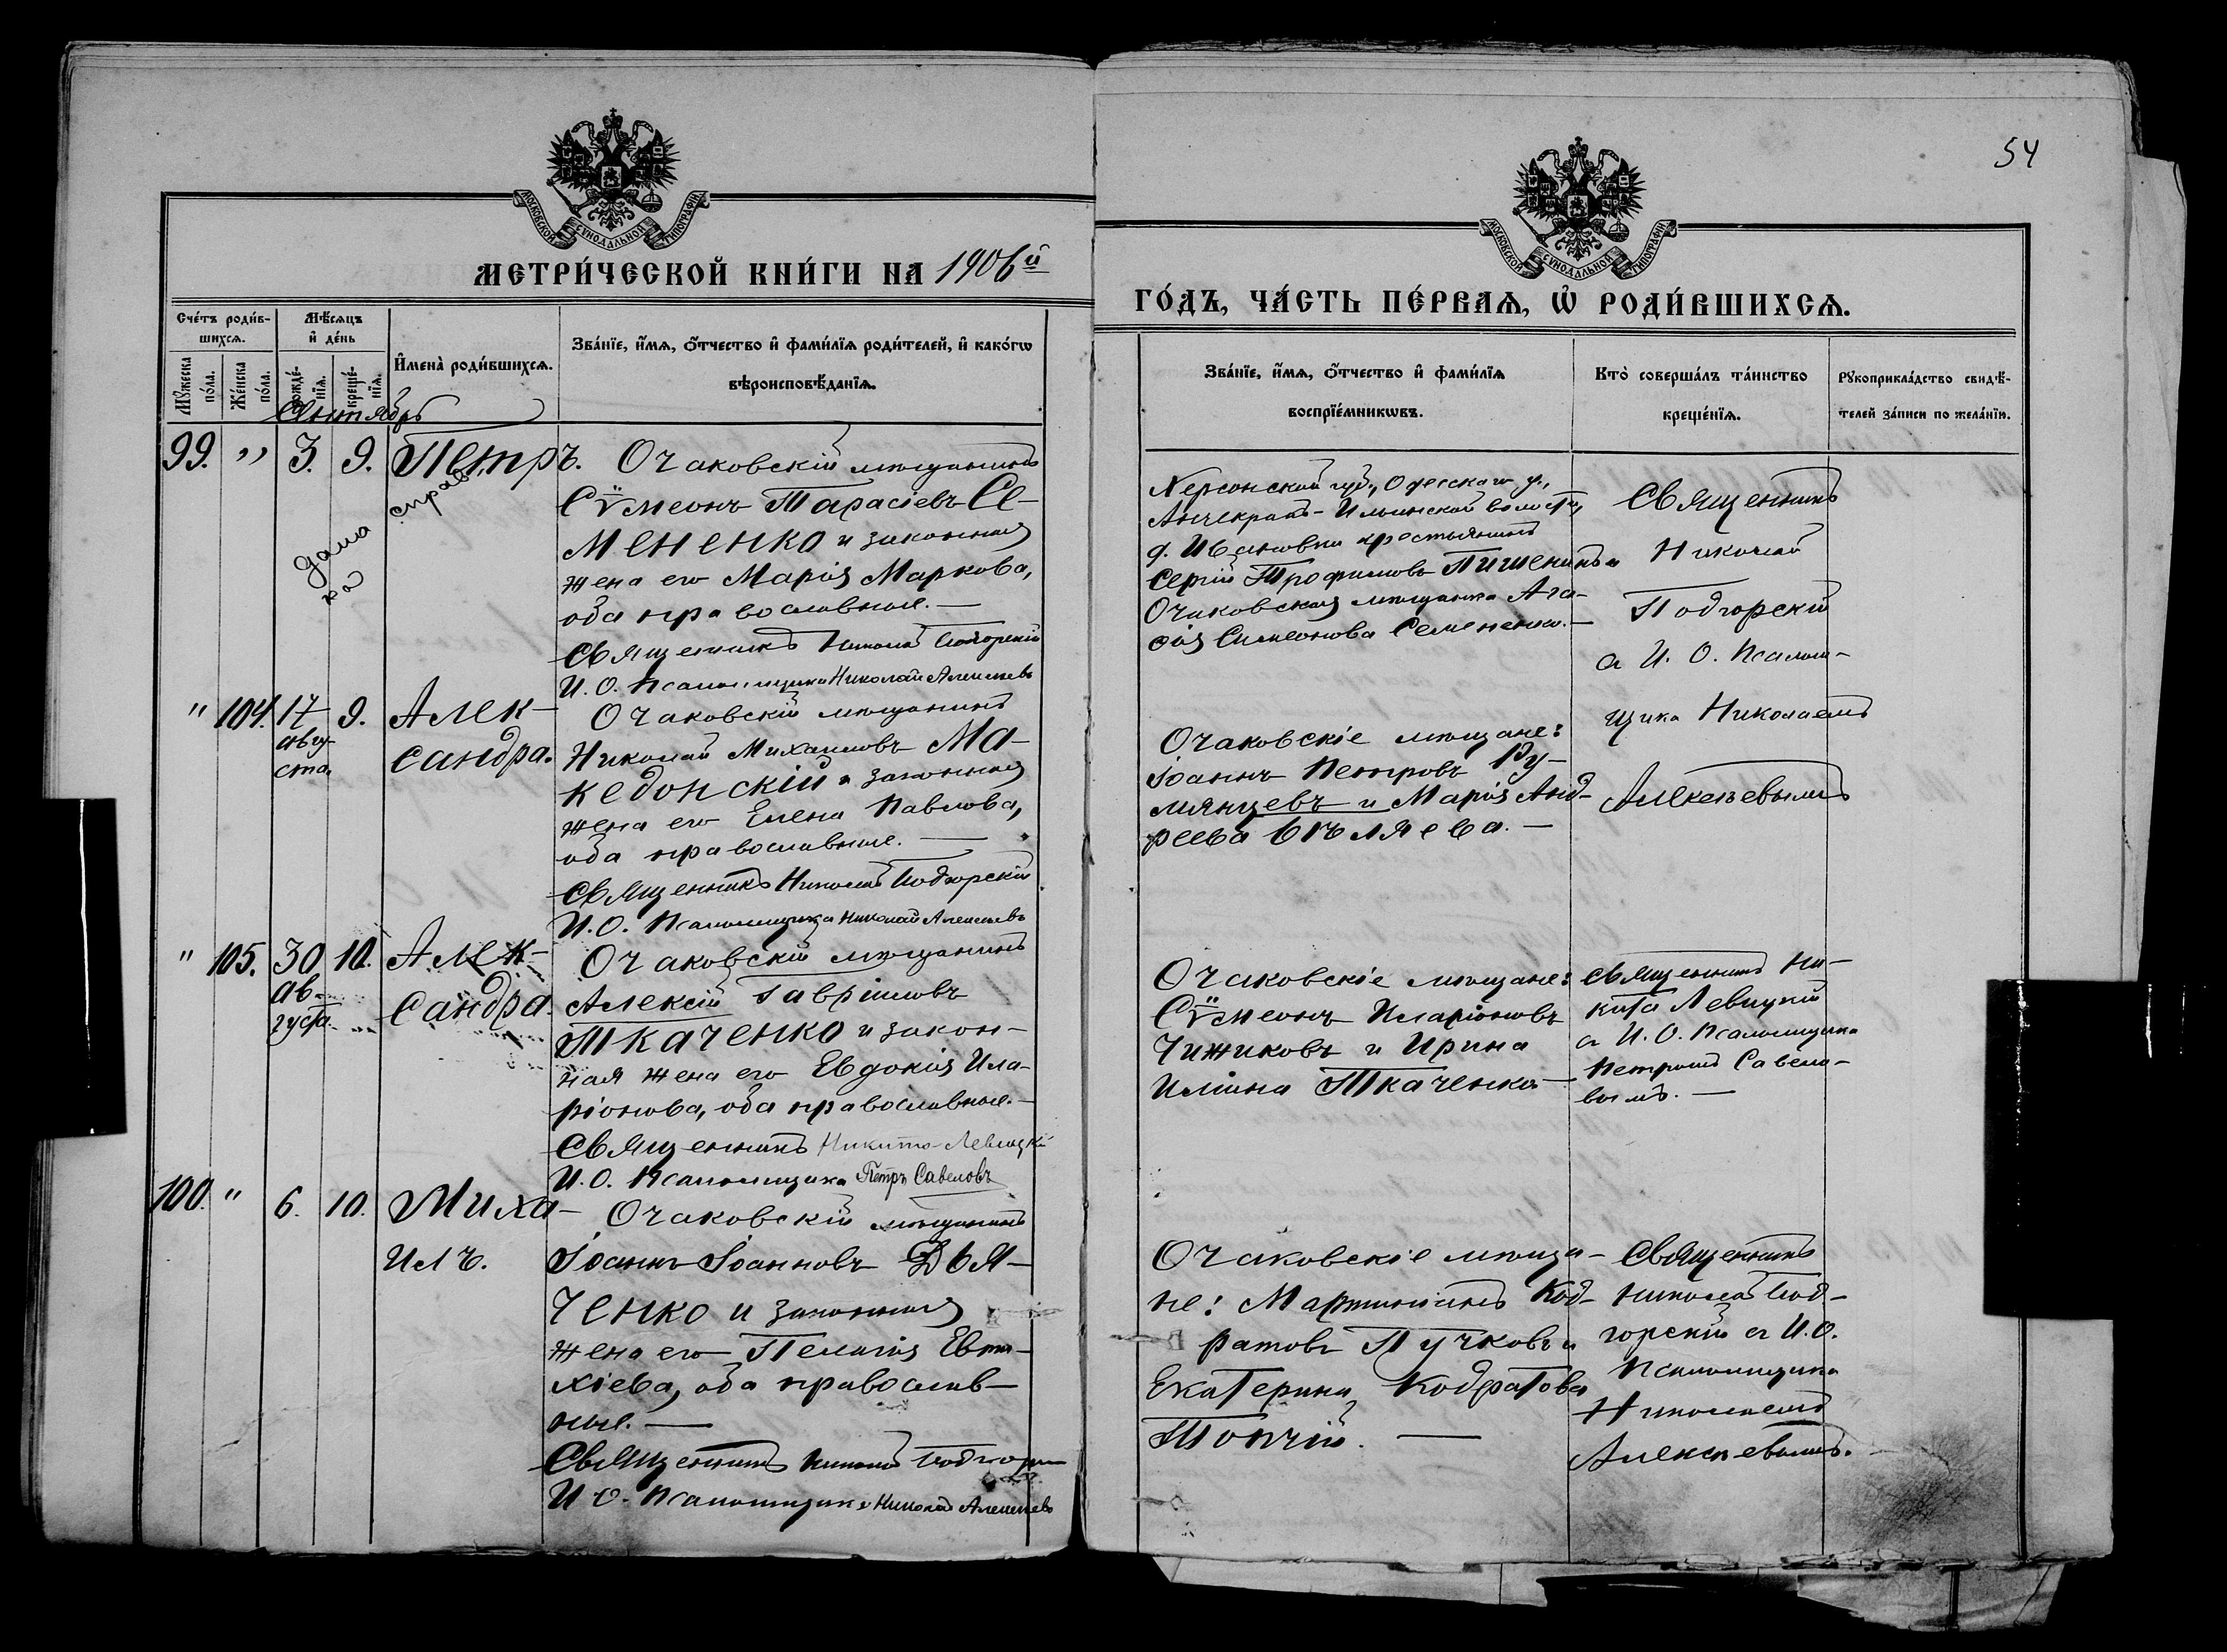 54
МОСКОВСКОЙ СѴНОДАЛЬНОЙ ТИПОГРАФІИ
МОСКОВСКОЙ СѴНОДАЛЬНОЙ ТИПОГРАФІИ
МЕТРИ́ЧЕСКОЙ КНИ́ГИ НА 1906й
ГО́ДЪ, ЧА́СТЬ ПЕ́РВАѦ, Ѡ РОДИ́ВШИХСѦ.
Сче́тъ роди́в-
шихсѧ.
Мѣ́сѧцъ
и҆ де́нь
Мꙋ́жеска
по́ла.
Же́нска
по́ла.
рожде́-
нїѧ.
креще́-
нїѧ.
И҆мена̀ роди́вшихсѧ.
Зва́нїе, и҆́мѧ, ѻ҆́тчество и҆ фами́лїѧ роди́телей, и҆ како́гѡ
вѣроисповѣ́данїѧ.
Зва́нїе, и҆́мѧ, ѻ҆́тчество и҆ фами́лїѧ
воспрїе́мникѡвъ.
Кто̀ соверша́лъ та́инство
креще́нїѧ.
Рꙋкоприкла́дство свидѣ́-
телей за́писи по жела́нїю.
Сентябрь
99. " 3. 9. Петръ.
Дана справ
ка
Очаковскій мѣщанинъ
Сѵмеонъ Тарасіевъ Се-
мененко и законная
жена его Марія Маркова,
оба православные. —
Священникъ Николай Подгорскій
И. О. Псаломщика Николай Алексѣевъ
Херсонской губ., Одесскаго у.,
Анчекракъ-Ильинской волости,
д. Ивановки крестьянинъ
Сергій Трофимовъ Пишенинъ и
Очаковская мѣщанка Ага-
фія Симеонова Семененко. —
Священникъ
Николай
Подгорскій
съ И. О. Псалом-
щика Николаемъ
Алексѣевымъ
" 104. 17 9. Алек-
авгу-
ста.
сандра.
Очаковскій мѣщанинъ
Николай Михаиловъ Ма-
кедонскій и законная
жена его Елена Павлова,
оба православные. —
Священникъ Николай Подгорскій
И. О. Псаломщика Николай Алексѣевъ
Очаковскіе мѣщане:
Іоаннъ Петровъ Ру-
мянцевъ и Марія Анд-
реева Бѣляева. —
" 105. 30 10. Алек-
ав-
густа.
сандра.
Очаковскій мѣщанинъ
Алексій Гавріиловъ
Ткаченко и закон-
ная жена его Евдокія Ила-
ріонова, оба православные. —
Священникъ Никита Левицкій
И. О. Псаломщика Петръ Савеловъ
Очаковскіе мѣщане:
Сѵмеонъ Иларіоновъ
Чижиковъ и Ирина
Илiина Ткаченко —
Священникъ Ни-
кита Левицкій
съ И. О. Псаломщика
Петромъ Савело-
вымъ. —
100. " 6. 10. Миха-
илъ.
Очаковскій мѣщанинъ
Іоаннъ Іоанновъ Дья-
ченко и законная
жена его Пелагія Евти-
хіева, оба православ-
ные. —
Священникъ Николай Подгорскій
И. О. Псаломщика Николай Алексѣевъ
Очаковскіе мѣща-
не: Мартиніанъ Код-
ратовъ Пучковъ и
Екатерина Кодратова
Топчій. —
Священникъ
Николай Под-
горскій съ И. О.
Псаломщика
Николаемъ
Алексѣевымъ.